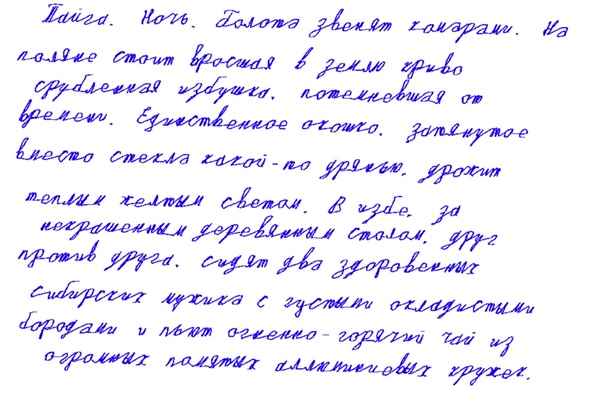 Тайга. Ночь. Болота звенят комарами. На
поляне стоит вросшая в землю криво
срубленная избушка. потемневшая от
времени. Единственное окошко. затянутое
вместо стекла какой-то дрянью. дрожит
теплым желтым светом. В избе. за
некрашенным деревянным столом. друг
против друга. сидят два здоровенных
сибирских мужика с густыми окладистыми
бородами и пьют огненно-горячий чай из
огромных помятых аллюминиевых кружек.